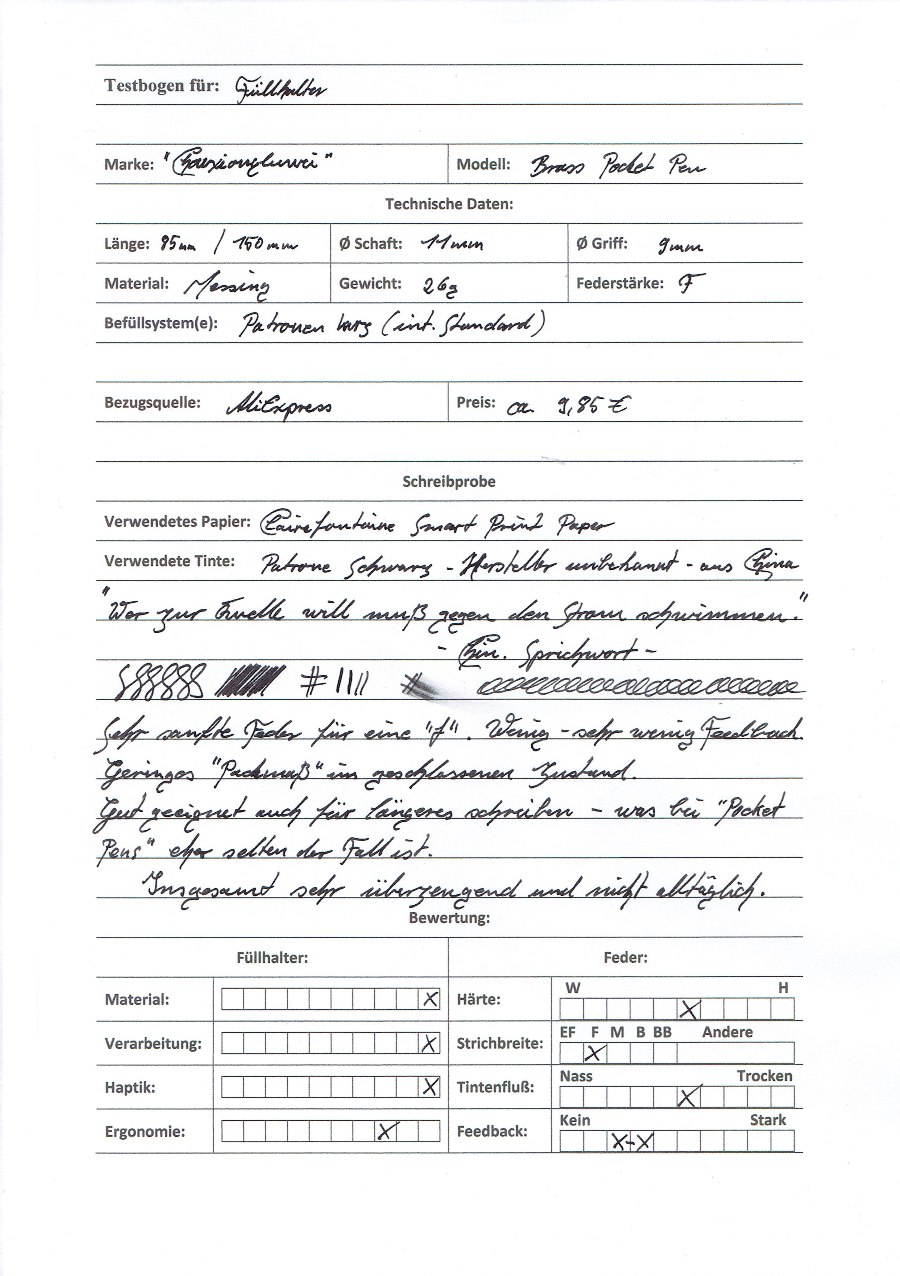 Testbogen für: Füllhalter
Marke: "Chouxiongluwei" Modell: Brass Pocket Pen
Technische Daten:
Länge: 95mm / 150mm Ø Schaft: 11mm Ø Griff: 9mm
Material: Messing Gewicht: 26g Federstärke: F
Befüllsystem(e): Patronen kurz (int. Standard)
Bezugsquelle: AliExpress Preis: ca. 9,85 €
Schreibprobe
Verwendetes Papier: Clairefontaine Smart Print Paper
Verwendete Tinte: Patrone Schwarz - Hersteller unbekannt - aus China
"Wer zur Quelle will muß gegen den Strom schwimmen."
- Chin. Sprichwort -
Sehr sanfte Feder für eine "f". Wenig - sehr wenig Feedback.
Geringes "Packmaß" im geschlossenen Zustand.
Gut geeignet auch für längeres schreiben - was bei "Pocket
Pens" eher selten der Fall ist.
Insgesamt sehr überzeugend und nicht alltäglich.
Bewertung:
Füllhalter: Feder:
Material: X Härte: W H X
Verarbeitung: X Strichbreite: EF F M B BB Andere X
Haptik: X Tintenfluß: Nass Trocken X
Ergonomie: X Feedback: Kein Stark X-X